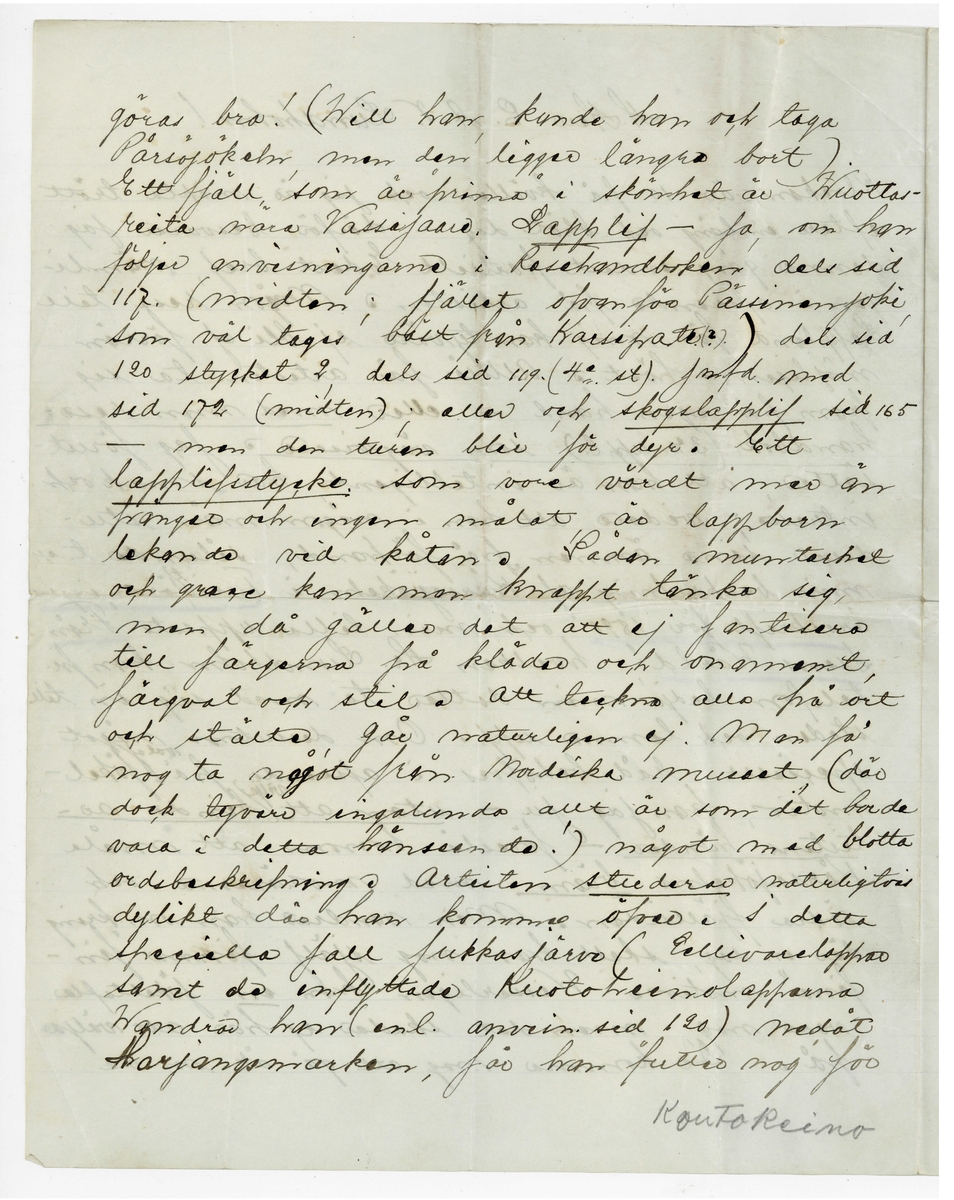 göras bra! (Will han, kunde han och taga
Pårsöjökeln, men den ligger längre bort).
Ett fjäll, som är prima i skönhet är Wuottas-
reita nära Vassijaure. Lapplif — Ja, om han
följer anvisningarne i Resehandboken, dels sid
117. (midten; fjället ofvanför Pässinenjoki,
som väl tages bäst från Karsifrate(?)) dels sid
120 stycket 2, dels sid 119. (4e st). Jmfd. med
sid 172 (midten); eller och skogslapplif sid 165
— men den turen blir för dyr. Ett
lapplifsstycke, som vore värdt mer än
pängar och ingen målat, är lappbarn
lekande vid kåtan. Sådan munterhet
och grace kan man knappt tänka sig,
men då gäller det att ej fantisera
till färgerna på kläder och onament,
färgval och stil. Att teckna alla på ort
och ställe, går naturligen ej. Man få
nog ta något från Nordiska museet, (där
dock tyvärr ingalunda allt är som det borde
vara i detta hänseende!) något med blotta
ordsbeskrifning. Artisten studerar naturligtvis
dylikt där han kommer öfver. I detta
speciella fall Jukkasjärvi (Gellivarelappar
samt de inflyttade Kuotokeinolapparna
Wandrar han (enl. anvin. sid 120) nedåt
Harjangsmarken, får han fuller nog för
Koutokeino